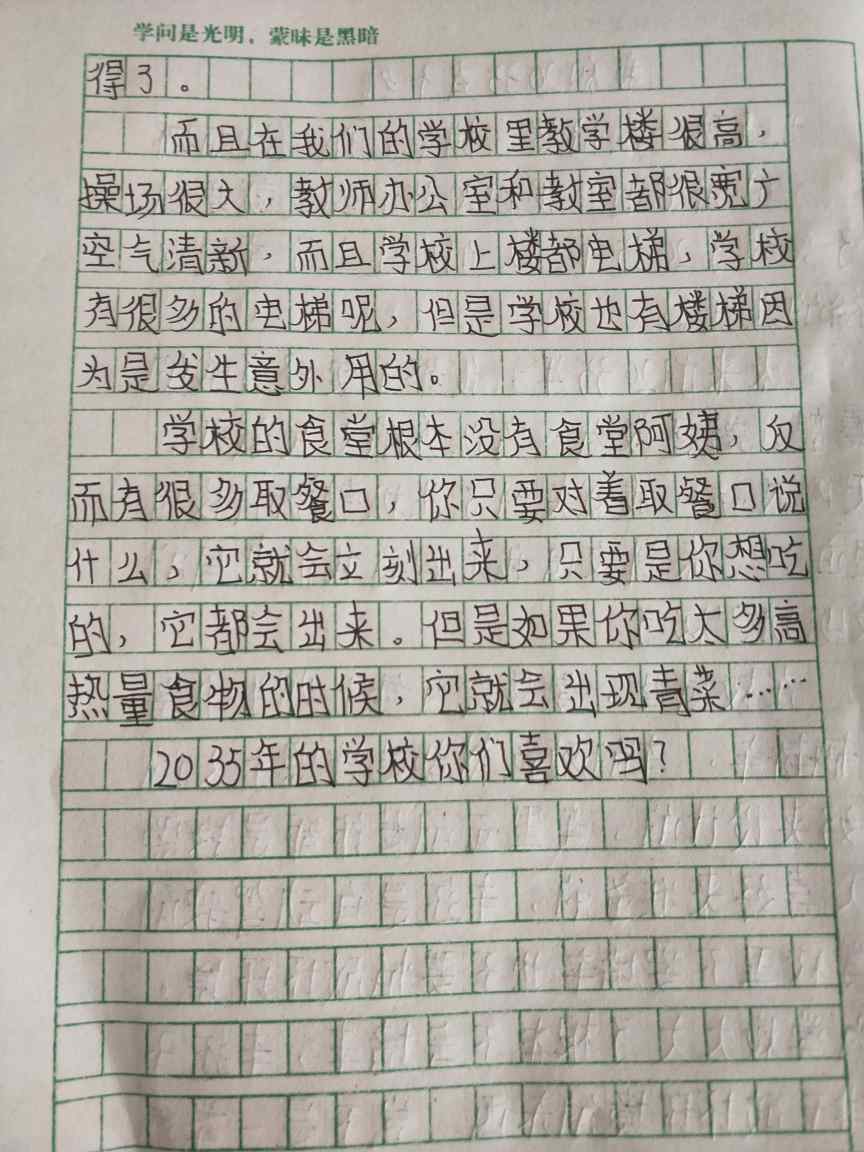 学问是光明，蒙昧是黑暗
得了。
而且在我们的学校里教学楼很高，
操场很大，教师办公室和教室都很宽广
空气清新，而且学校上楼都电梯，学校
有很多的电梯呢，但是学校也有楼梯因
为是发生意外用的。
学校的食堂根本没有食堂阿姨，反
而有很多取餐口，你只要对着取餐口说
什么，它就会立刻出来，只要是你想吃
的，它都会出来。但是如果你吃太多高
热量食物的时候，它就会出现青菜……
2035年的学校你们喜欢吗？